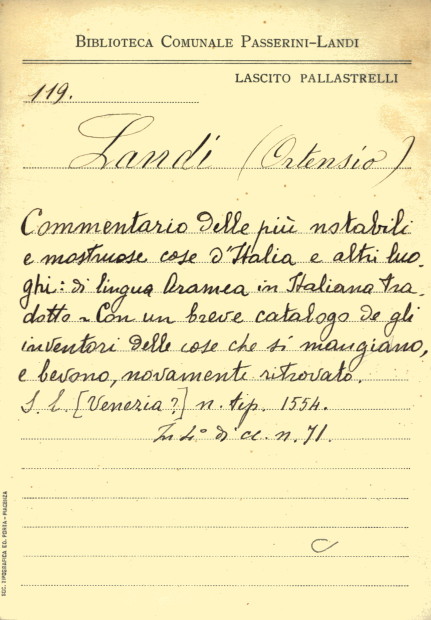 BIBLIOTECA COMUNALE PASSERINI-LANDI
LASCITO PALLASTRELLI
119.
Landi (Ortensio)
Commentario delle più notabili
e mostruose cose d'Italia e altri luo-
ghi: di lingua Aramea in Italiana tra-
dotto - Con un breve catalogo de gli
inventori delle cose che si mangiano,
e bevono, novamente ritrovato.
S. L. [Venezia?] n. tip. 1554.
In 4° di cc. n. 71.
C
SOC. TIPOGRAFICA ED. PORTA - PIACENZA